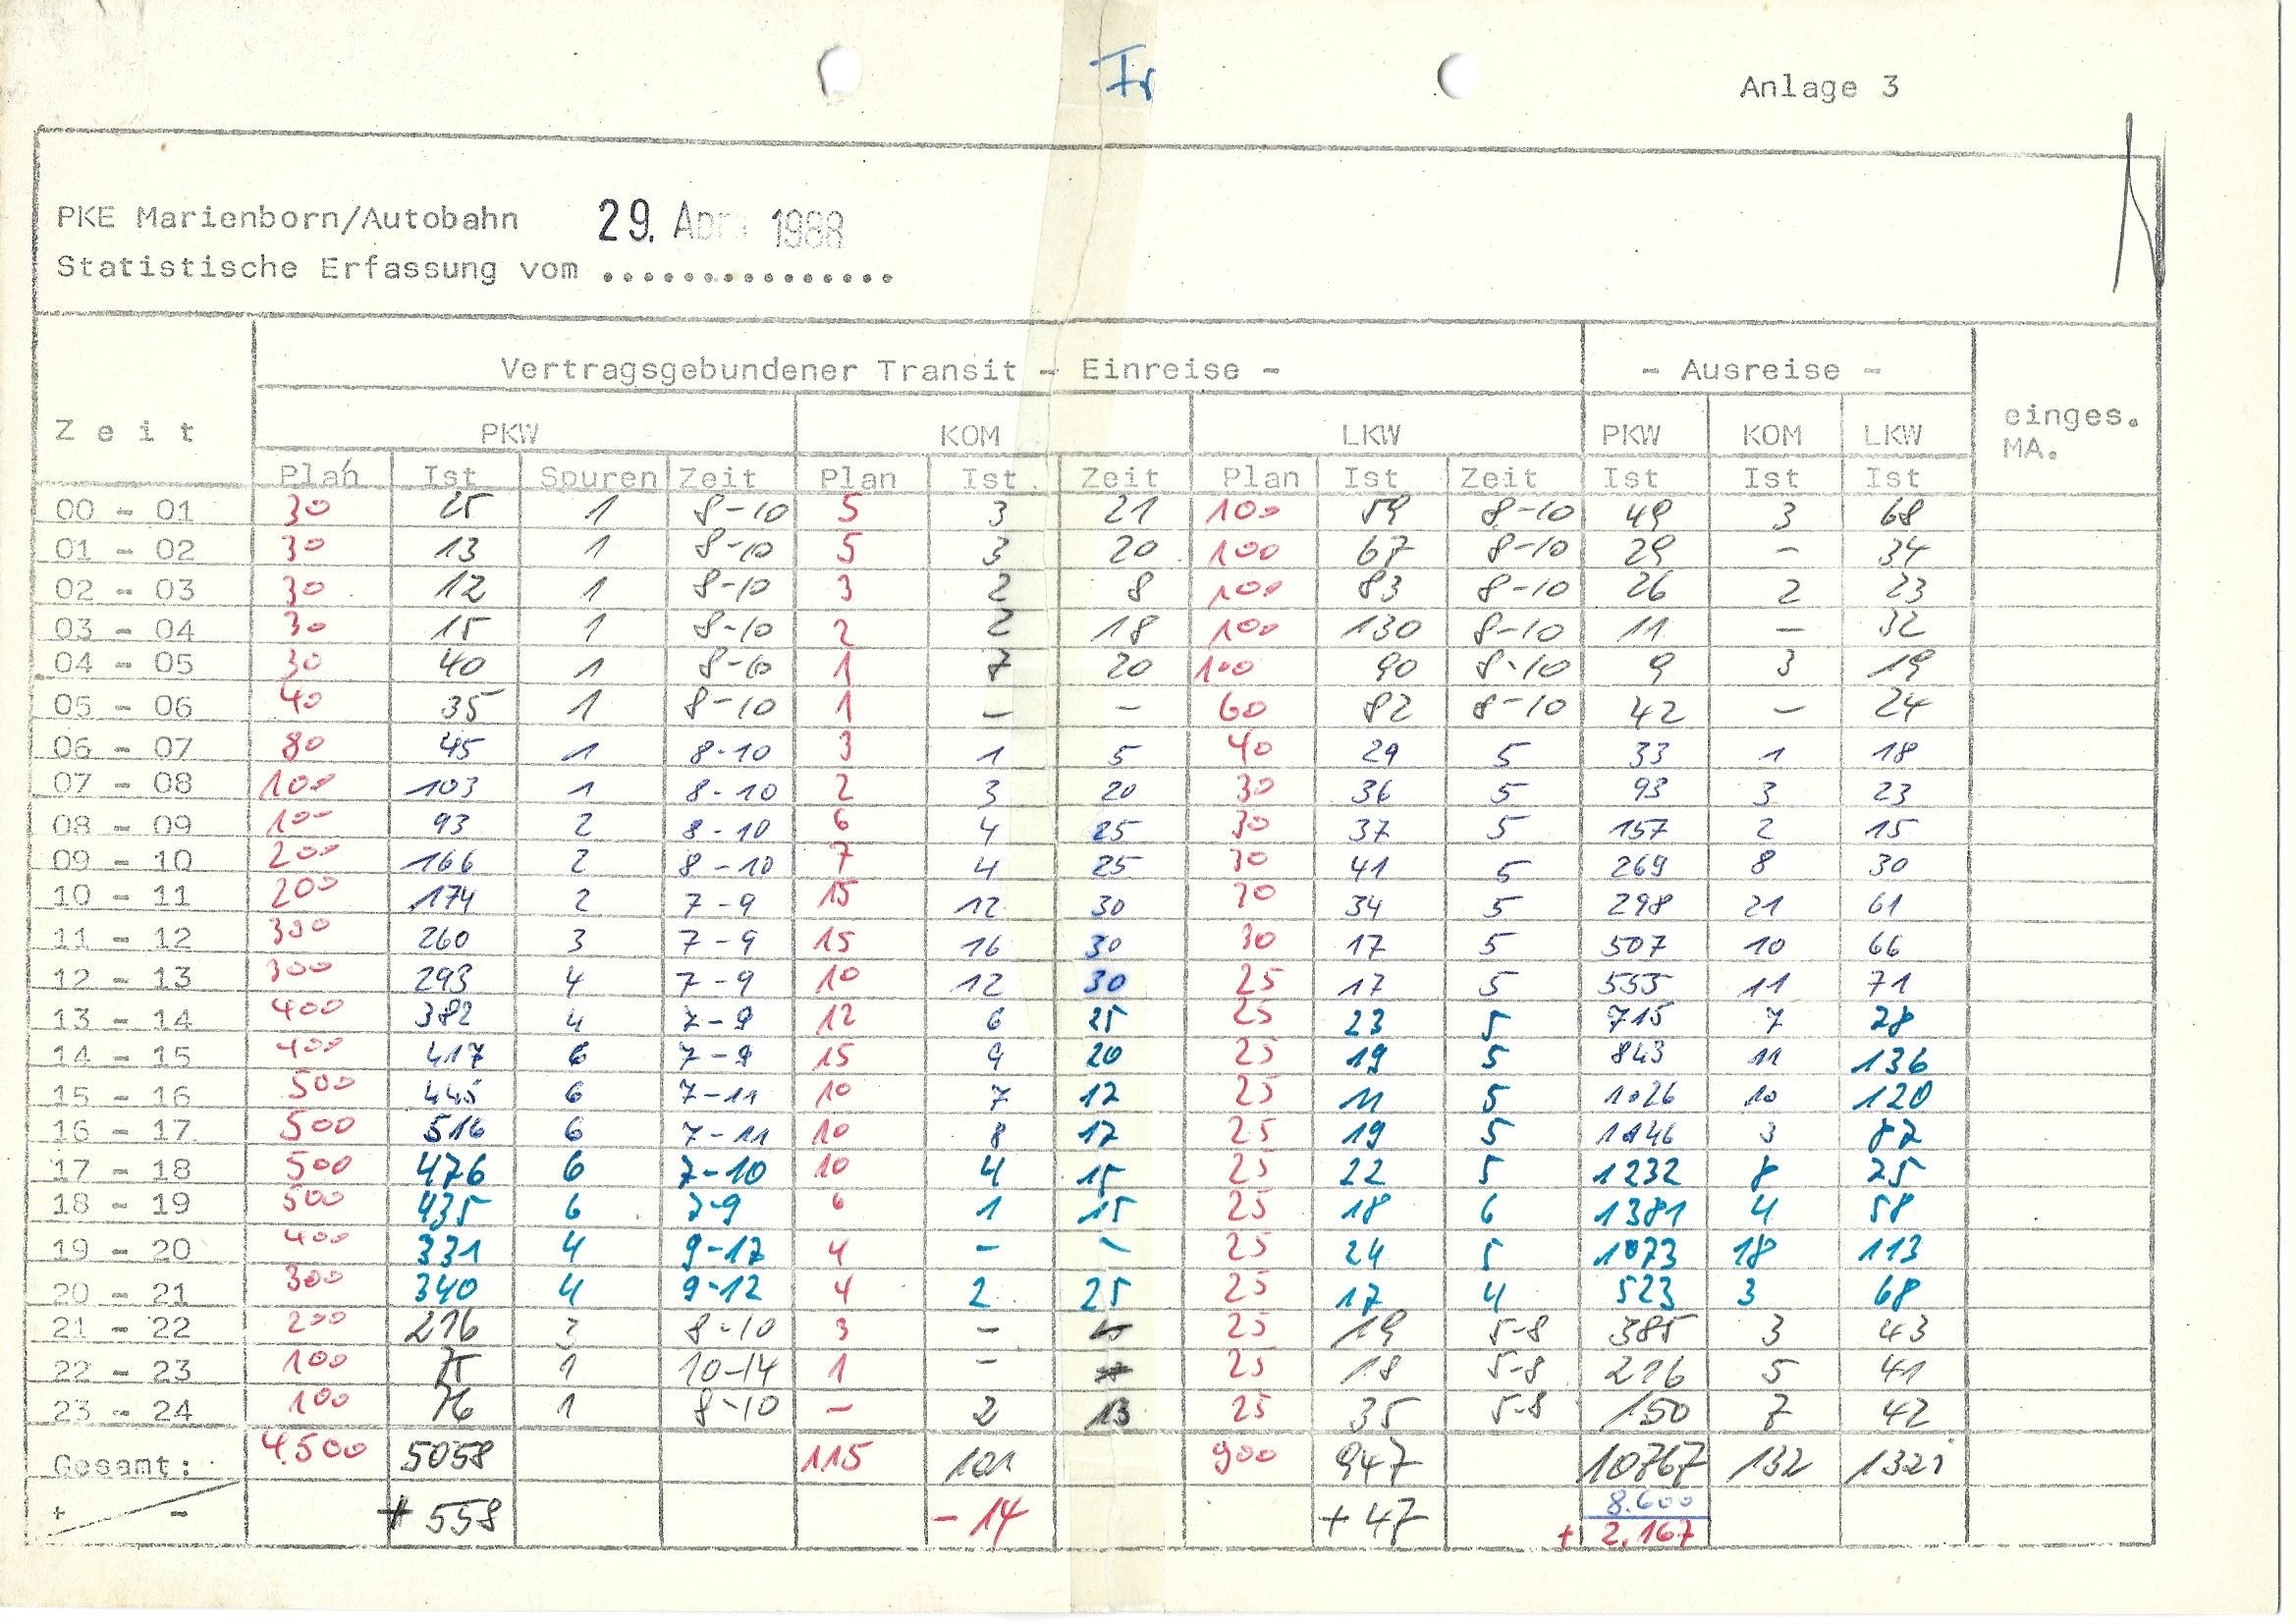 Fr
Anlage 3
PKE Marienborn/Autobahn 29. Apr 1988
Statistische Erfassung vom ...............
Vertragsgebundener Transit - Einreise - - Ausreise -
Zeit PKW KOM LKW PKW KOM LKW einges. MA.
Plan Ist Spuren Zeit Plan Ist Zeit Plan Ist Zeit Ist Ist Ist
00 - 01 30 25 1 8-10 5 3 21 100 59 8-10 49 3 68
01 - 02 30 13 1 8-10 5 3 20 100 67 8-10 29 - 34
02 - 03 30 12 1 8-10 3 2 8 100 83 8-10 26 2 23
03 - 04 30 15 1 8-10 2 2 18 100 130 8-10 11 - 32
04 - 05 30 40 1 8-10 1 7 20 100 90 8-10 9 3 19
05 - 06 40 35 1 8-10 1 - - 60 82 8-10 42 - 24
06 - 07 80 45 1 8-10 3 1 5 40 29 5 33 1 18
07 - 08 100 103 1 8-10 2 3 20 30 36 5 93 3 23
08 - 09 100 93 2 8-10 6 4 25 30 37 5 157 2 15
09 - 10 200 166 2 8-10 7 4 25 30 41 5 269 8 30
10 - 11 200 174 2 7-9 15 12 30 30 34 5 298 21 61
11 - 12 300 260 3 7-9 15 16 30 30 17 5 507 10 66
12 - 13 300 293 4 7-9 10 12 30 25 17 5 555 11 71
13 - 14 400 382 4 7-9 12 6 25 25 23 5 715 7 28
14 - 15 400 417 6 7-9 15 9 20 25 19 5 843 11 136
15 - 16 500 445 6 7-11 10 7 12 25 11 5 1026 10 120
16 - 17 500 516 6 7-11 10 8 12 25 19 5 1146 3 87
17 - 18 500 476 6 7-10 10 4 15 25 22 5 1232 8 25
18 - 19 500 435 6 7-9 6 1 15 25 18 6 1381 4 58
19 - 20 400 331 4 9-12 4 - - 25 24 5 1073 18 113
20 - 21 300 340 4 9-12 4 2 25 25 17 4 523 3 68
21 - 22 200 216 3 8-10 3 - 25 19 5-8 385 3 43
22 - 23 100 75 1 10-14 1 - 25 18 5-8 216 5 41
23 - 24 100 76 1 8-10 - 2 13 25 35 5-8 150 7 42
Gesamt: 4.500 5058 115 101 900 947 10767 132 1321
+ - + 558 - 14 + 47 8.600
+ 2.167